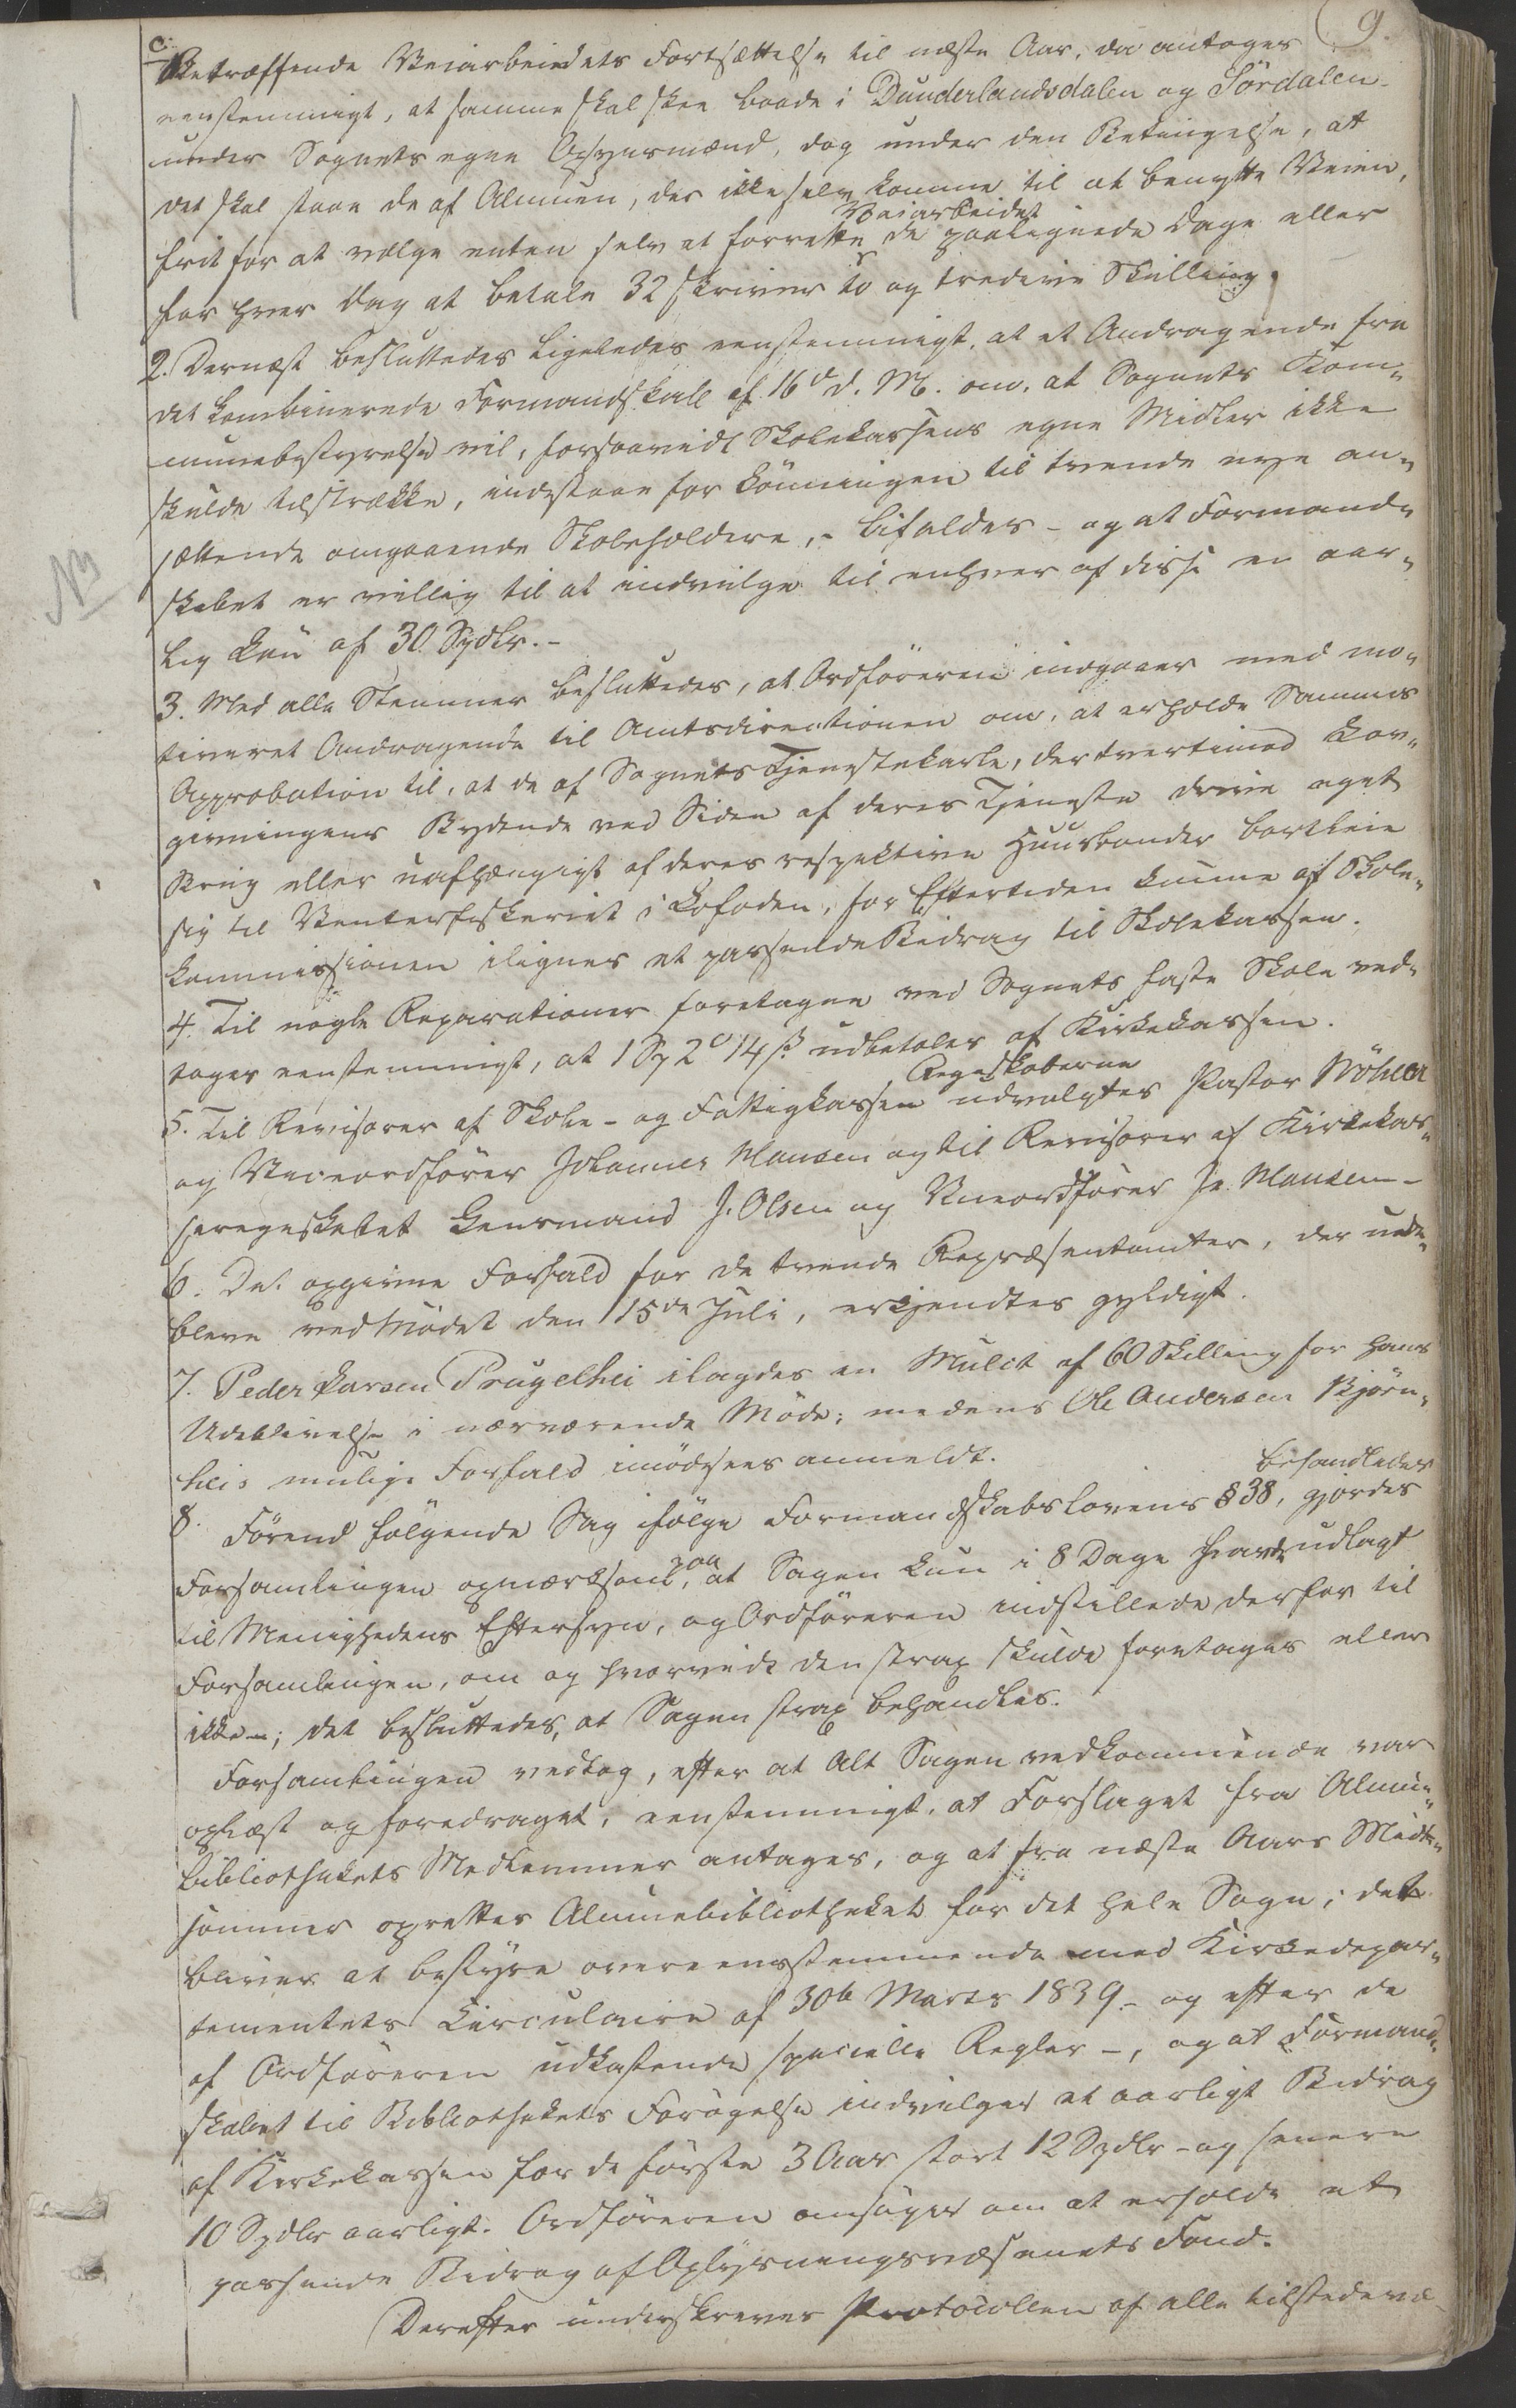 9.
c.
Betræffende Veiarbeidets Fortsættelse til næste Aar, da antoges
eenstemmigt, at samme skal skee baade i Dunderlandsdalen og Sördalen
under Sognets egne Opsynsmænd, dog under den Betingelse, at
det skal staae de af Almuen, der ikke selv komme til at benytte Veien,
frit for at vælge enten selv at forrette Veiarbeidet de paalignede Dage eller
for hver Dag at betale 32 skriver to og tredive Skilling.
2. Dernæst besluttedes ligeledes eenstemmigt, at et Andragende fra
det kombinerede Formandskab af 16d d. M. om, at Sognets Kom„
munebestyrelse vil, forsaavidt Skolekassens egne Midler ikke
skulde tilstrække, indestaae for Lönningen til tvende nye an„
sættende omgaaende Skoleholdere, - bifaldes - og at Formand„
skabet er villig til at indvilge til enhver af disse en aar„
lig Lön af 30 Spdlr. -
3. Med alle Stemmer besluttedes, at Ordföreren indgaaer med mo„
tiveret Andragende til Amtsdirectionen om, at erholde Sammes
Approbation til, at de af Sognets Tjenestekarle, der tvertimod Lov„
givningens Bydende ved Siden af deres Tjeneste drive eget
Brug eller uafhængigt af deres respektive Huusbonder bortleie
sig til Vinterfiskeriet i Lofoden, for Eftertiden kunne af Skole„
kommissionen ilignes et passende Bidrag til Skolekassen.
4. Til nogle Reparationer foretagne ved Sognets faste Skole ved„
toges eenstemmigt, at 1 Sp 2 14 ß udbetales af Kirkekassen.
5. Til Revisorer af Skole- og Fattigkasse Regnskaberne udvalgtes Pastor
og Viceordförer Johannes Hansen og til Revisorer af Kirkekas„
seregnskabet Lensmand J. Olsen og Viceordförer Js. Hansen -
6. Det opgivne Forfald for de tvende Repræsentanter, der ude„
bleve ved Mödet den 15de Juli, erkjendtes gyldigt.
7. Peder Larsen Prugelhei ilagdes en Mulct af 60 Skilling for hans
Udeblivelse i nærværende Möde; medens Ole Andersen Björn„
heis mulige Forfald imödesees anmeldt.
8. Förend fölgende Sag ifölge Formandskabslovens § 38, behandledes gjordes
Forsamlingen opmærksom paa, at Sagen kun i 8 Dage havde udlagt
til Menighedens Eftersyn, og Ordföreren indstillede derfor til
Forsamlingen, om og hvorvidt den strax skulde foretages eller
ikke -; det besluttedes, at Sagen strax behandles.
Forsamlingen vedtog, efter at Alt Sagen vedkommende var
oplæst og foredraget, eenstemmigt, at Forslaget fra Almue„
bibliothekets Medlemmer antages, og at fra næste Aars Midt„
sommer oprettes Almuebibliotheket for det hele Sogn; det
bliver at bestyre overeensstemmende med Kirkedepar„
tementets Circulaire af 30te Marts 1839 - og efter de
af Ordföreren udkastende specielle Regler -, og at Formand„
skabet til Bibliothekets Forögelse indvilger et aarligt Bidrag
af Kirkekassen for de förste 3 Aar stort 12 Spdlr - og senere
10 Spdlr aarligt. Ordföreren ansöger om at erholde et
passende Bidrag af Oplysningsvæsenets Fond.
Derefter underskreves Protocollen af alle tilstedevæ